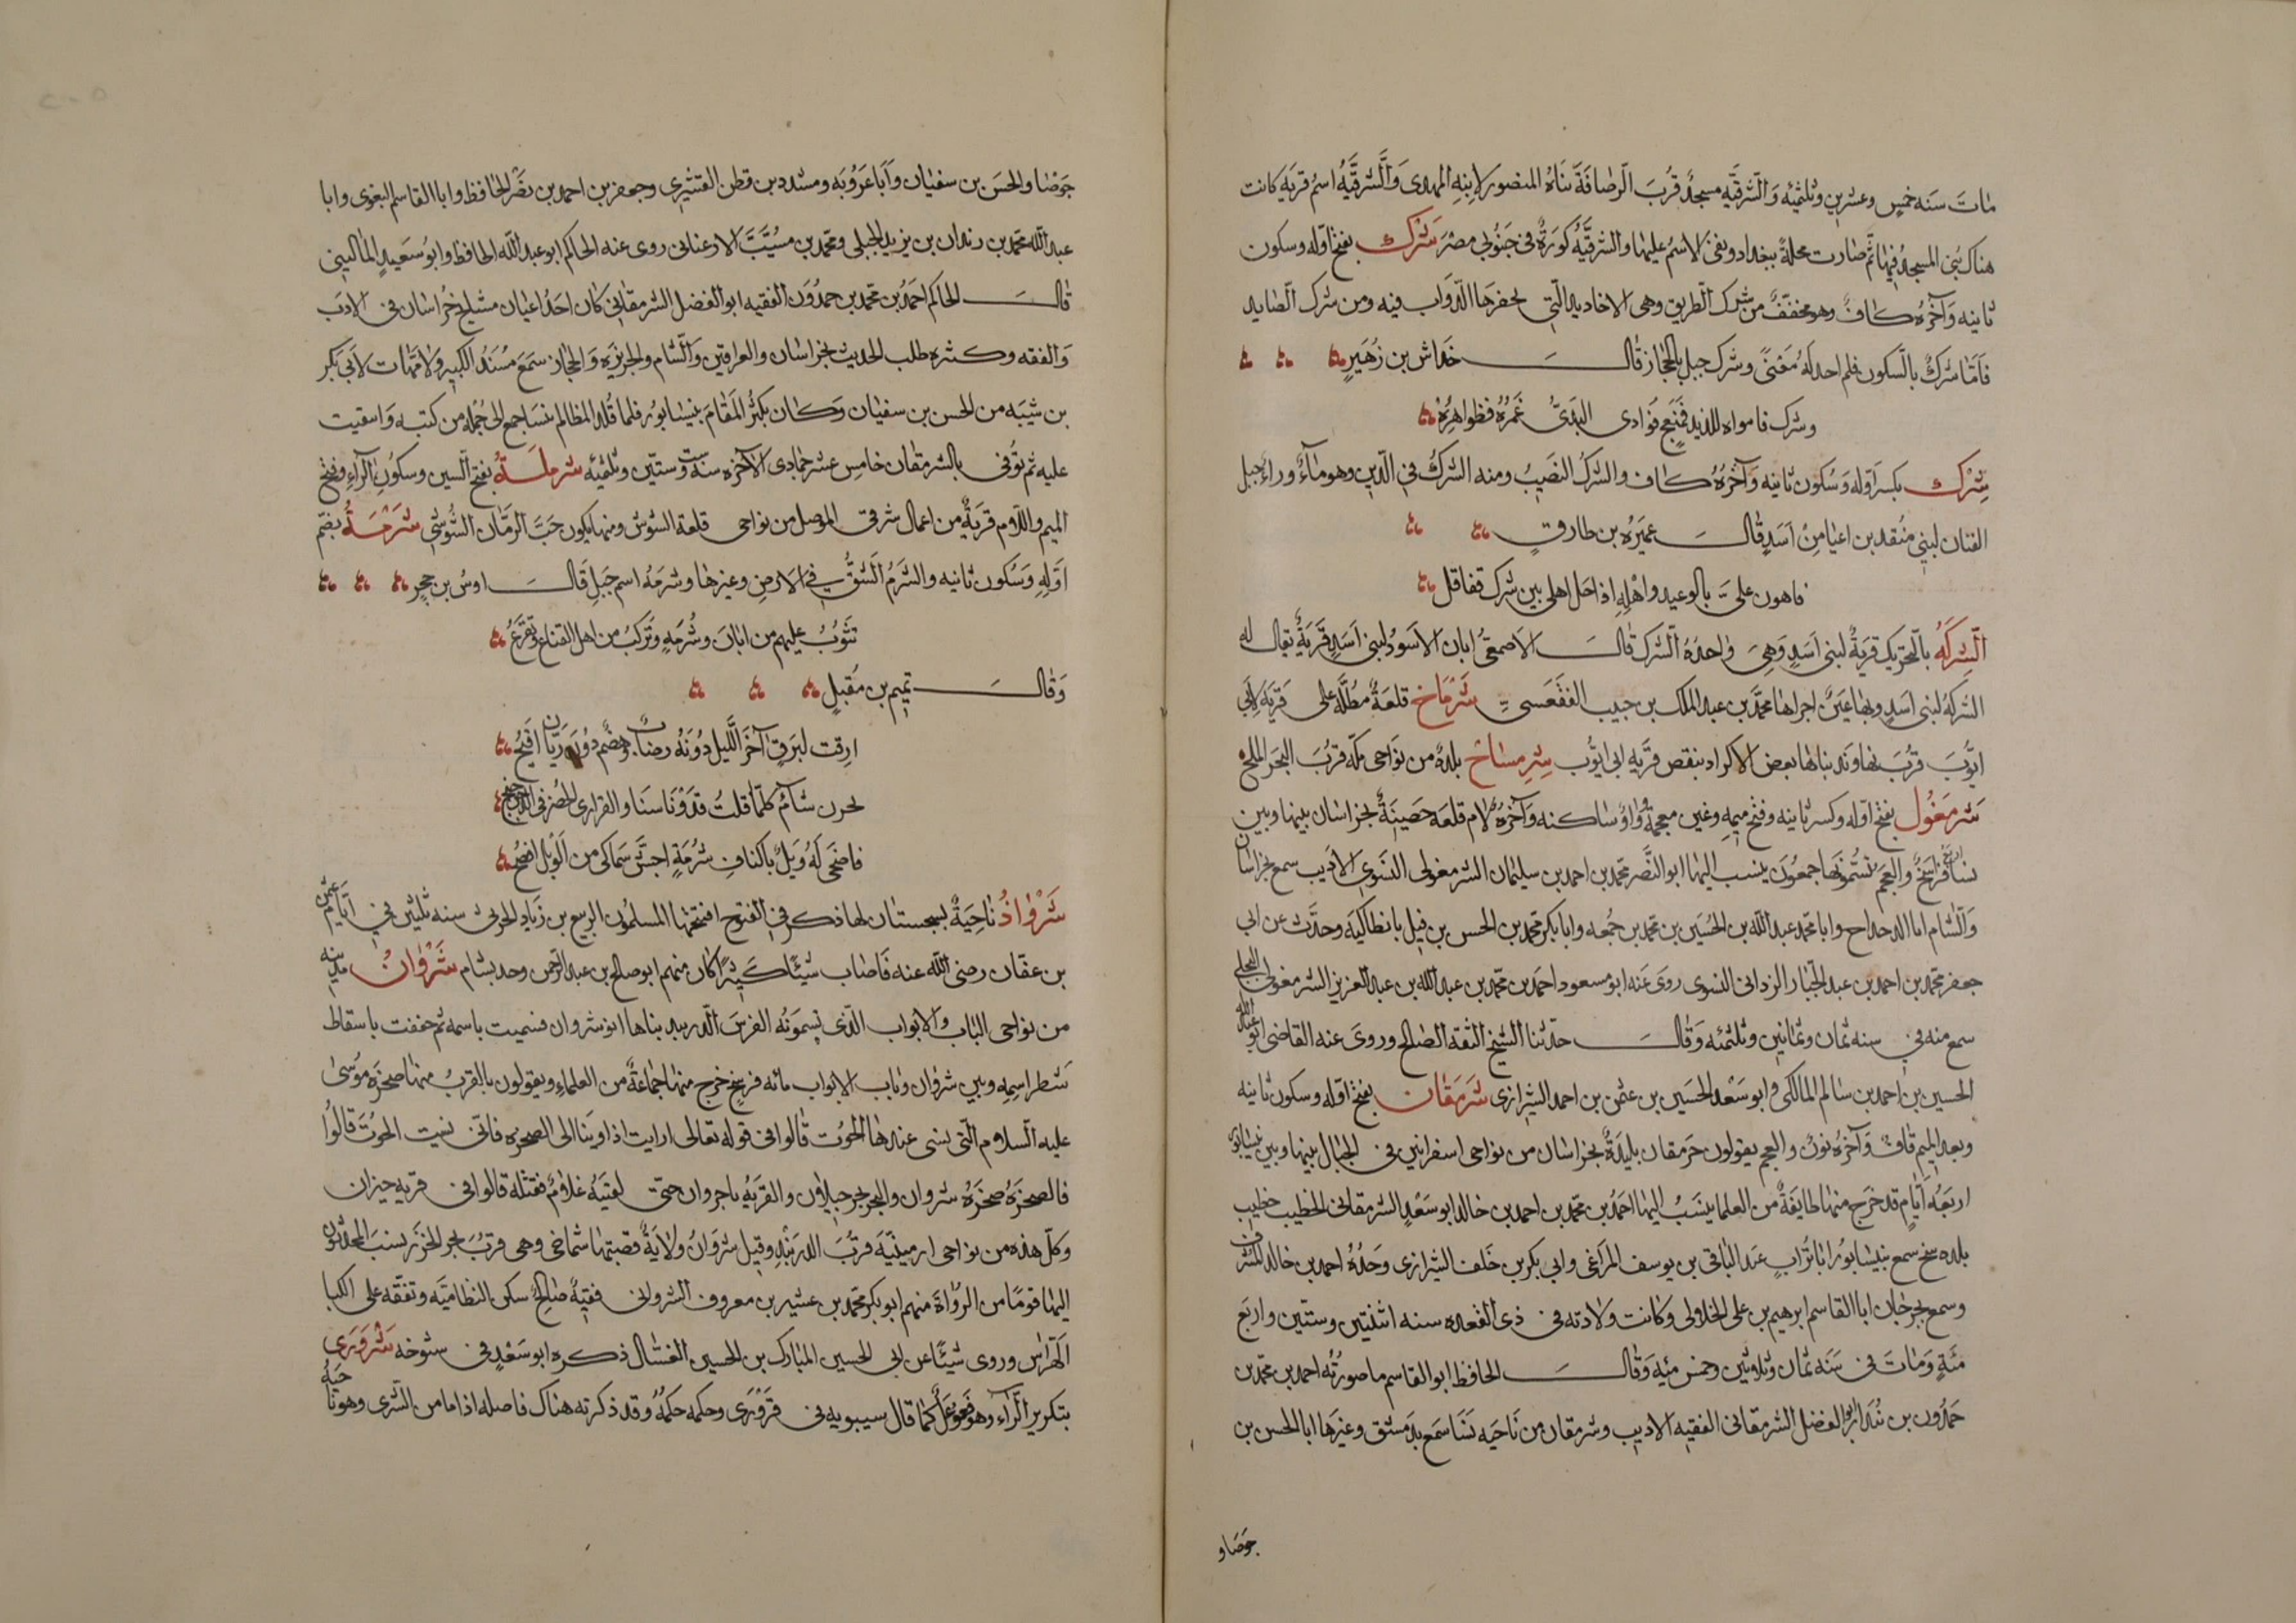 مات سنه خمس وعشرين وثلثمئه والشرقيه مسجد قرب الرصافة بناه المنصور لابنه المهدى والشرقيه اسم قريه كانت
هناك بنى المسجد فيها ثم صارت محلة ببغداد وبقى الاسم عليها والشرقية كورة فى جنوبى مصر شرك بفتح اوله وسكون
ثانيه وآخره كاف وهو مخفف من شرك الطريق وهى الاخاديد التى تحفرها الدواب فيه ومن شرك الصايد
فاما شرك بالسكون فلم اجد له معنى وشرك جبل بالحجاز قال خداش بن زهير
وشرك فامواه اللديد فمنعج فوادى البدى غمره فظواهره
شرك بكسر اوله وسكون ثانيه وآخره كاف والشرك النصيب ومنه الشرك فى الدين وهو ماء وراء جبل
القنان لبنى منقد بن اعيا من اسد قال عميره بن طارق
فاهون على بالوعيد واهله اذا حل اهلى بين شرك فعاقل
الشركه بالتحريك قرية لبنى اسد وهى واحده الشرك قال الاصمعى ابان الاسود لبنى اسد قرية يقال له
الشركه لبنى اسد وبها عين اجراها محمد بن عبد الملك بن حبيب الفقعسى شرماخ قلعة مطلة على قريه لابى
ايوب قرب نهاوند بناها بعض الاكراد بنقص قريه ابى ايوب شرمساح بلده من نواحى مكه قرب البحر الملح
شرمغول بفتح اوله وكسر ثانيه وفتح ميمه وغين معجمة وواو ساكنه وآخره لام قلعه حصينة بخراسان بينها وبين
نسا اربع فراسخ والعجم تسمونها جمعون ينسب اليها ابو النصر محمد بن احمد بن سليمان الشرمغولى النسوى الاديب سمع بخراسان
والشام اما الدحداح وابا محمد عبد الله بن الحسين بن محمد بن جمعه وابا بكر محمد بن الحسن بن فيل بانطاكيه وحدث عن ابى
جعفر محمد بن احمد بن عبد الجبار الزدانى النسوى روى عنه ابو مسعود احمد بن محمد بن عبد الله بن عبد العزيز الشرمغولى البجلى
سمع منه فى سنه ثمان وثمانين وثلثمئه وقال حدثنا الشيخ الثقه الصالح وروى عنه القاضى ابو عبد الله
الحسين بن احمد بن سالم المالكى وابو سعد الحسين بن عثمن بن احمد الشيرازى شرمقان بفتح اوله وسكون ثانيه
وبعد الميم قاف وآخره نون والعجم يقولون جرمقان بليدة بخراسان من نواحى اسفرايين فى الجبال بينها وبين نيسابور
اربعه ايام قد خرج منها طايفة من العلما ينسب اليها احمد بن محمد بن احمد بن خالد ابو سعد الشرمقانى الخطيب خطيب
بلده سخ سمع بنيسابور ابا تراب عبد الباقى بن يوسف المراغى وابى بكر بن خلف الشيرازى وجده احمد بن خالد المشرف
وسمع بجرجان ابا القاسم ابرهيم بن على الخلالى وكانت ولادته فى ذى القعده سنه اثنتين وستين واربع
مئة ومات فى سنه ثمان وثلاثين وخمس مئه وقال الحافظ ابو القاسم ما صورته احمد بن محمد بن
حمدون بن بندار ابو الفضل الشرمقانى الفقيه الاديب وشرمقان من ناحيه نسا سمع بدمشق وغيرها ابا الحسن بن
جوصاو
جوصا والحسن بن سفيان وابا عروبه ومسدد بن قطن القشيرى وجعفر بن احمد بن نصر الحافظ وابا القاسم البغوى وابا
عبد الله محمد بن زيدان بن يزيد البجلى ومحمد بن مسيب الارغنانى روى عنه الحاكم ابو عبد الله الحافظ وابو سعيد المالينى
قال الحاكم احمد بن محمد بن حمدون الفقيه ابو الفضل الشرمقانى كان احد اعيان مشايخ خراسان فى الادب
والفقه وكثره طلب الحديث بخراسان والعراقين والشام والجزيره والحجاز سمع مسند الكبير ولامهات لابى بكر
بن شيبه من الحسن بن سفيان وكان بكثر المقام بنيسابور فلما قلد المظالم بنسا جمع الى جمله من كتبه واسقيت
عليه ثم توفى بالشرمقان خامس عشر جمادى الآخره سنه ست وستين وثلثمئه شرملة بفتح الشين وسكون الراء وفتح
الميم واللام قرية من اعمال شرقى الموصل من نواحى قلعة السوس ومنها يكون حب الرمان الشوشى شرمة بضم
اوله وسكون ثانيه والشرم الشق فى الارض وغيرها وشرمه اسم جبل قال اوس بن حجر
تثوب عليهم من ابان وشرمه وتركب من اهل القناع وتفرع
وقال تميم بن مقبل
ارقت لبرق آخر الليل دونه رضاب وهضم دون ريان افيح
لحرن شآم كلما قلت قدونا سنا والقرارى الخضر فى الدجن جنح
فاضحى له وبل باكناف شرمة اجش سماكى من الوبل افضح
شرواذ ناحية بسجستان لها ذكر فى الفتوح افتتحها المسلمون الربيع بن زياد الحرثى سنه ثلثين فى ايام عثمن
بن عفان رضى الله عنه فاصاب شيئا كثيرا كان منهم ابو صالح بن عبد الرحمن وجد بسام شروان مدينه
من نواحى الباب والابواب الذى يسمونه الفرس الدربند بناها انوشروان فسميت باسمه ثم خففت باسقاط
شطر اسمه وبين شروان وباب الابواب مائه فرسخ خرج منها جماعة من العلماء ويقولون بالقرب منها صخره موسى
عليه السلام التى نسى عندها الحوت قالوا فى قوله تعالى ارايت اذا اوينا الى الصخره فانى نسيت الحوت قالوا
فالصخره صخره شروان والبحر بحر جيلان والقريه باجروان حتى لقيه غلام فقتله قالوا فى قريه جيزان
وكل هذه من نواحى ارمينيه قرب الدربند وقيل شروان ولاية قصبتها شماخى وهى قرب بحر الخزر نسب المحدثون
اليها قوما من الرواة منهم ابو بكر محمد بن عشير بن معروف الشروانى فقيه صالح سكن النظاميه وتفقه على الكيا
الهراس وروى شيئا عن ابى الحسين المبارك بن الحسين الغسال ذكره ابو سعد فى شيوخه شرورى
بتكرير الراء وهو فعوعل كما قال سيبويه فى قرورى وحكمه حكمه وقد ذكرته هناك فاصله اذا اما من الشرى وهو ناحيه